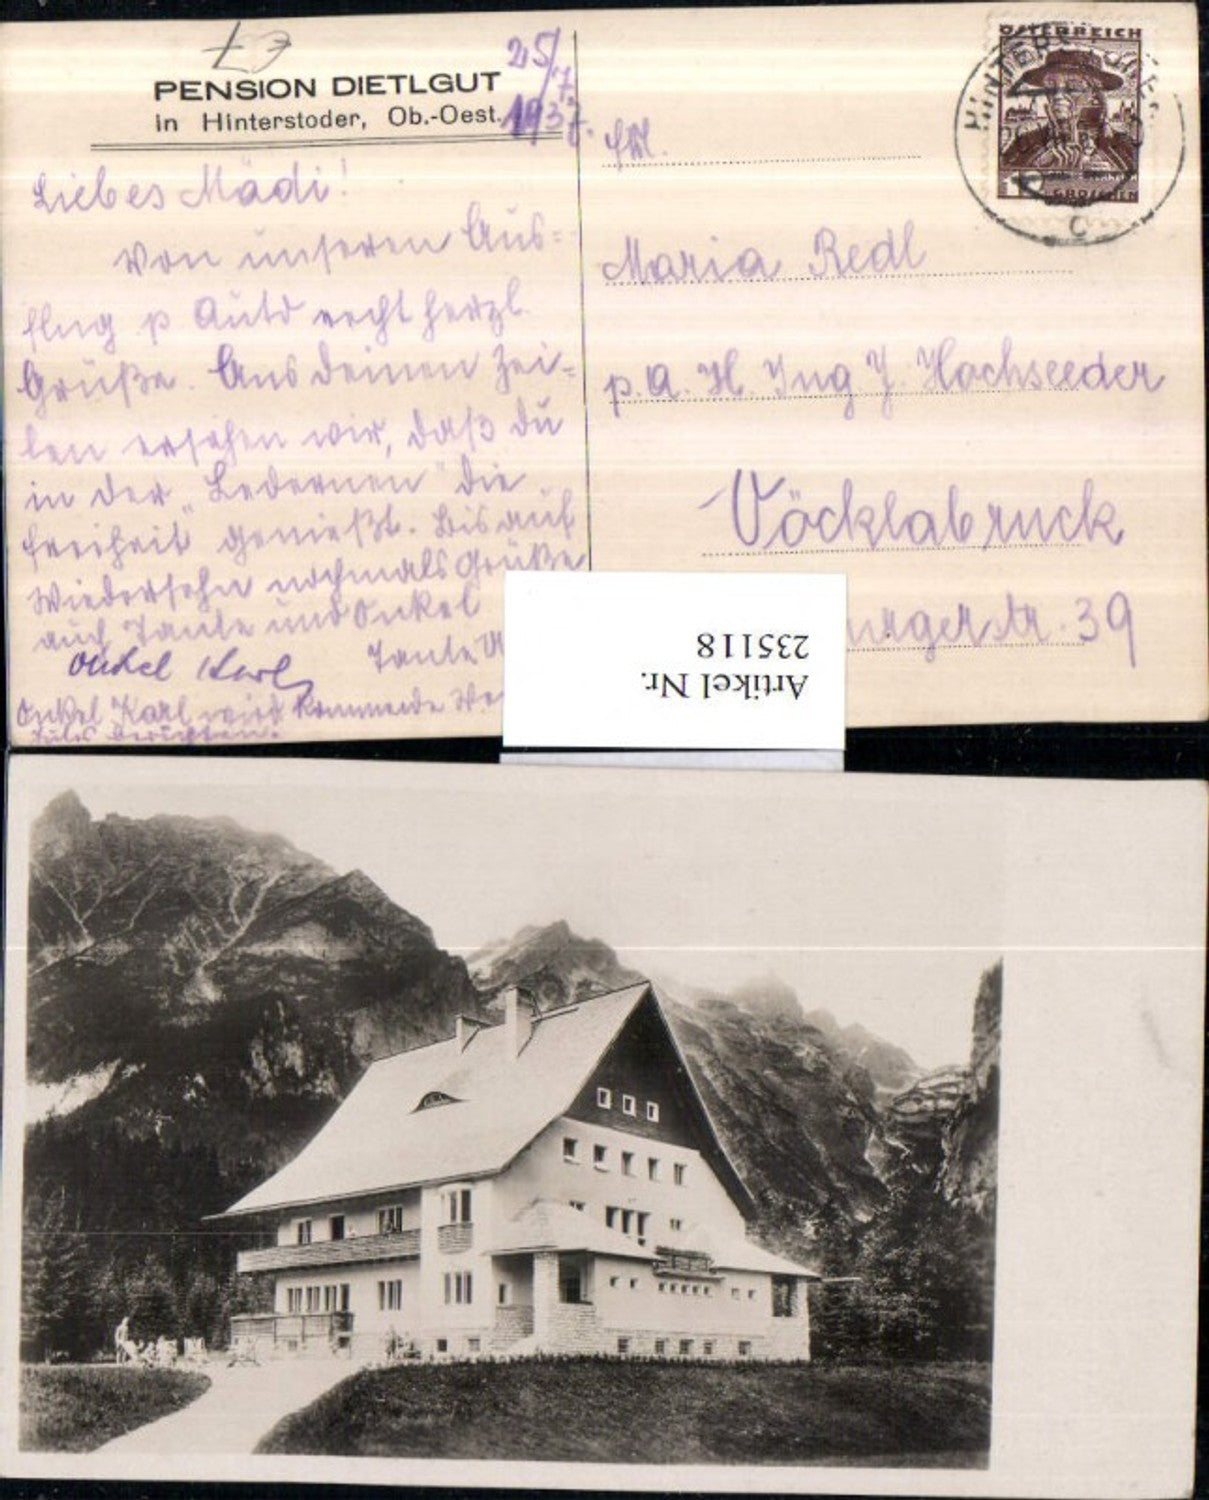 PENSION DIETLGUT
in Hinterstoder, Ob.-Oest.
25/7.
1937.
Liebes Mädi!
Von unseren Aus=
flug p Auto recht herzl.
Grüße. Aus deinen Zei=
len ersehen wir, daß du
in der "Ledernen" die
Freiheit genießt. Bis auf
Wiedersehn nochmals Grüße
auch Tante und Onkel
Onkel Karl
Tante
Onkel Karl wird kommende
berichten.
ÖSTERREICH
GROSCHEN
HINTERSTODER
Frl.
Maria Redl
p. A. H. Ing J. Hochseeder
Vöcklabruck
urgerstr. 39
Artikel Nr.
235118